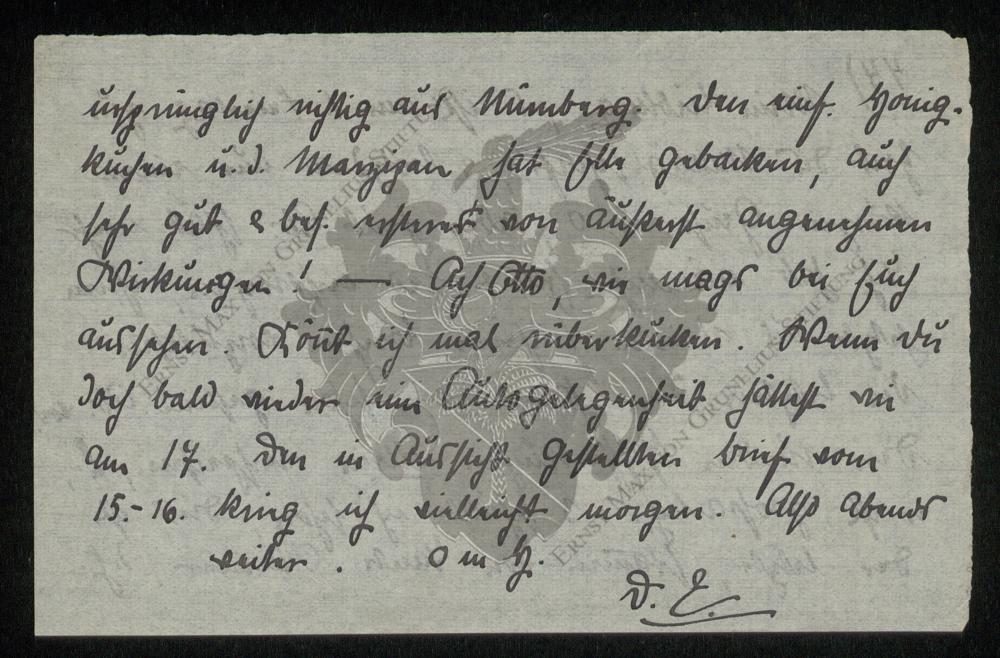 ursprünglich richtig aus Nürnberg. Den einf. Honig-
kuchen u. d. Marzipan hat Elle gebacken, auch
sehr gut & bes. ersteres von äußerst angenehmen
Wirkungen! — Ach Otto, wie mags bei Euch
aussehen. Könnt ich mal rüberkucken. Wenn Du
doch bald wieder eine Autogelegenheit hättest wie
am 17. Den in Aussicht gestellten Brief vom
15.-16. krieg ich vielleicht morgen. Also Abends
weiter. O m H.
D. E.
ERNST MAX VON GRUNELIUS-STIFTUNG
ERNST MAX VON GRUNELIUS-STIFTUNG